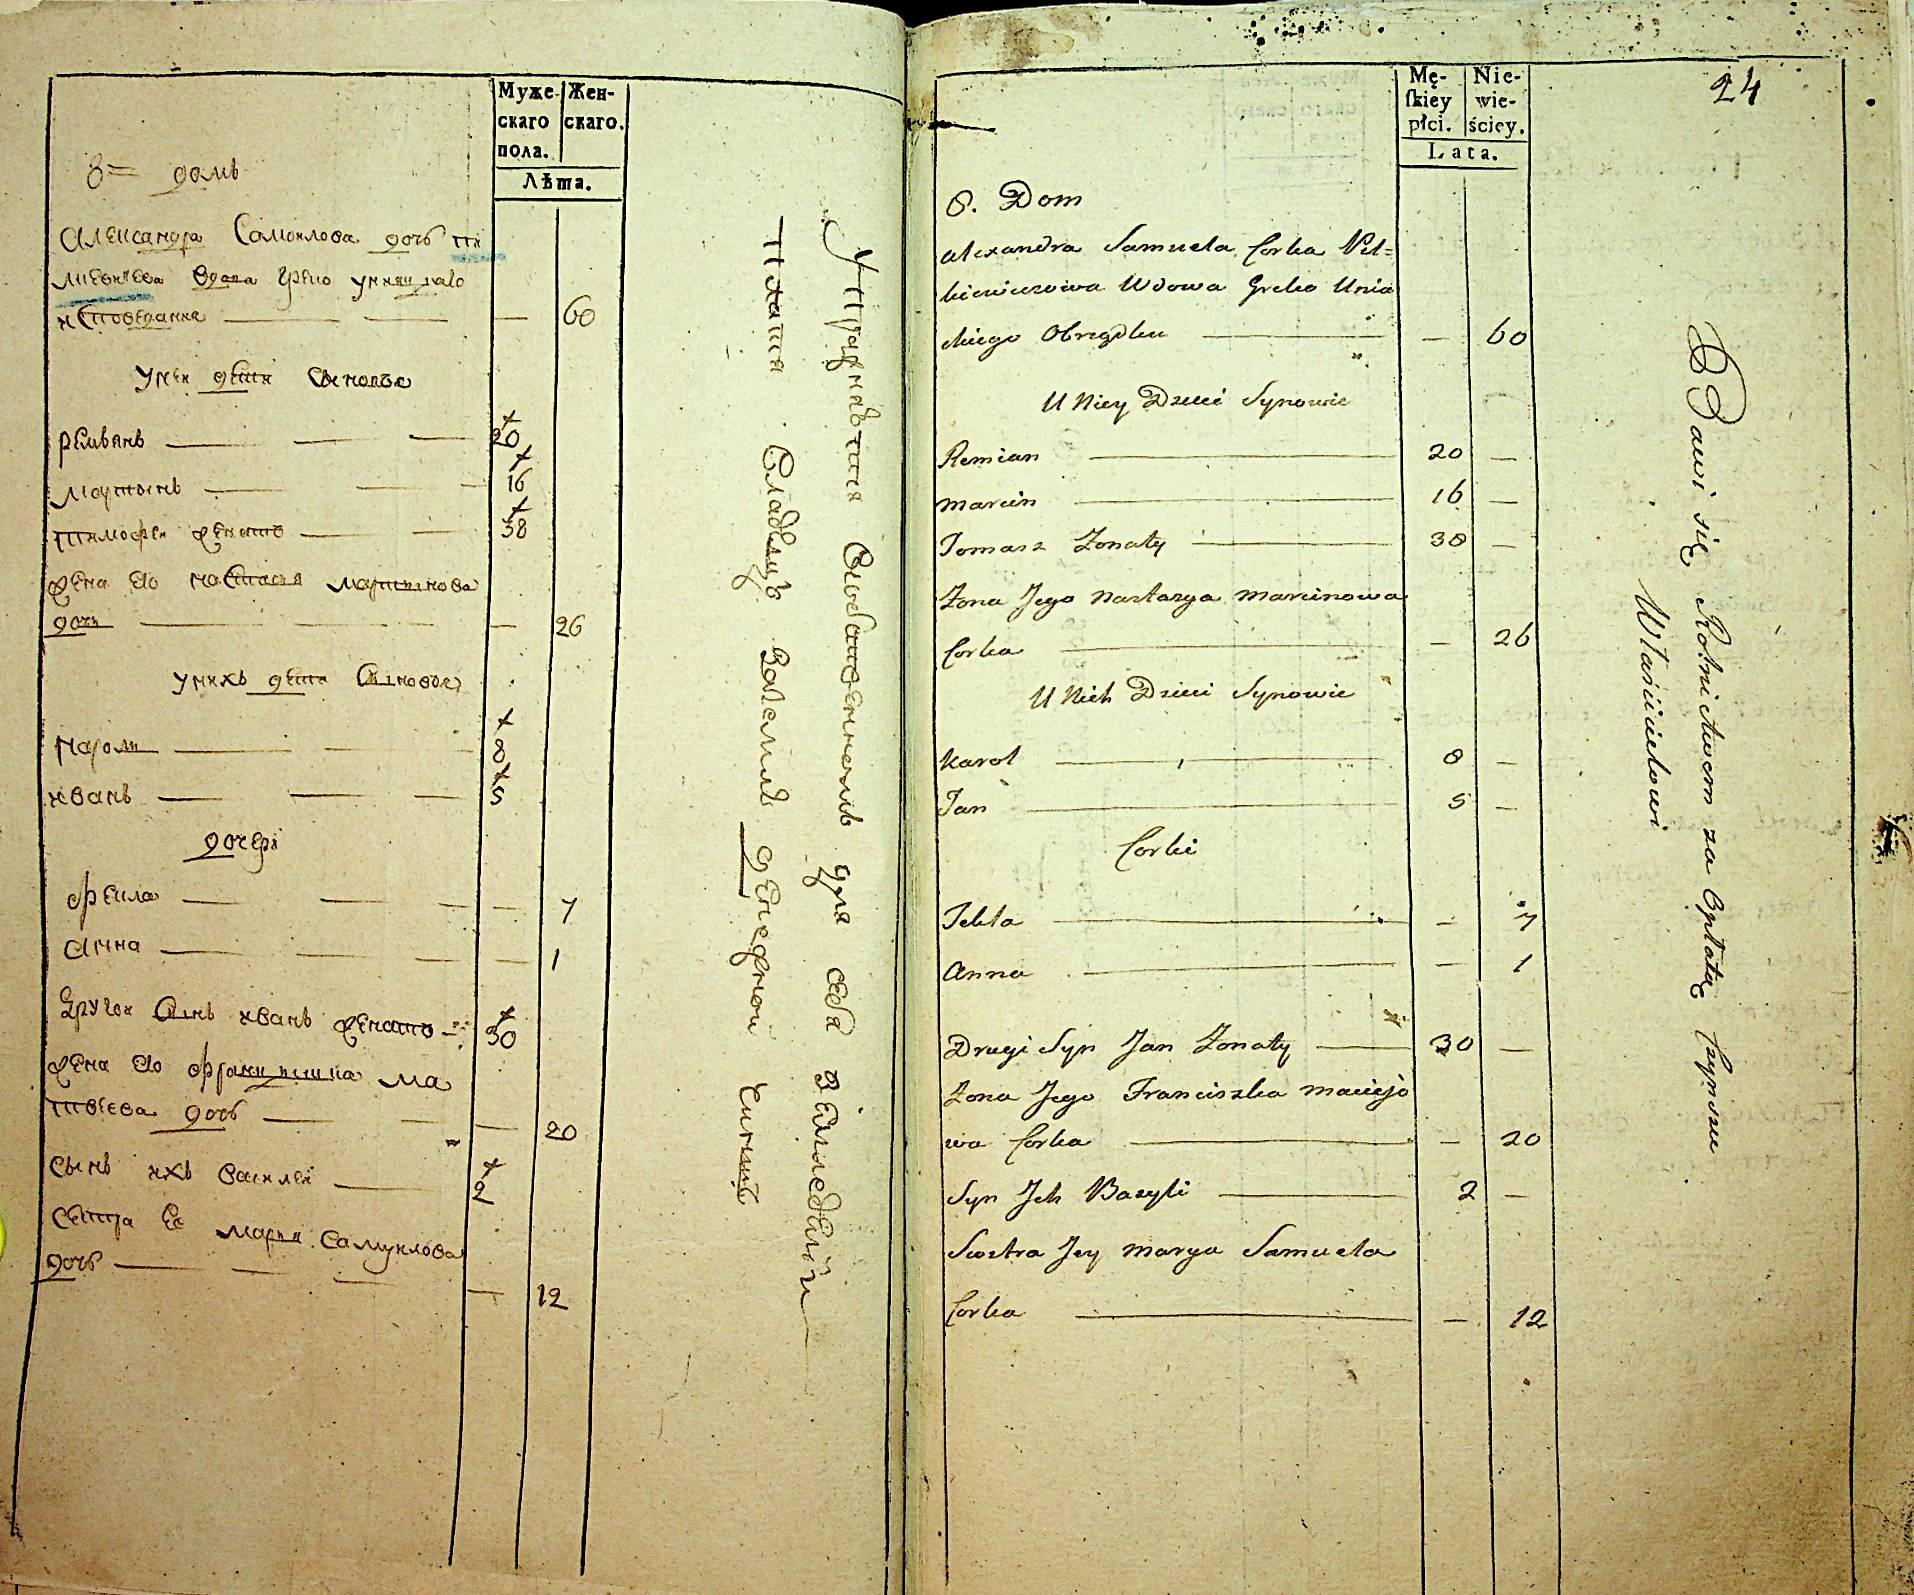 Муже-
скаго
пола.
Жен-
скаго.
Лѣта.
8= домъ
Александра Самойлова дочь Пи
лкевичева вдова греко унияцкаго
исповедания — — — — 60
У ней дети сыновья
Ремьянъ — — — 20
Мартынъ — — — 16
Тимофей женатъ — — 38
жена его Настасья Мартынова
дочь — — — — 26
У нихъ дети сыновья
Кароли — — — 8
Иванъ — — — 5
дочери
Фекла — — — — 7
Анна — — — — 1
Другой сынъ Иванъ женатъ — 30
жена его Францишка Ма
твеева дочь — — — 20
сынъ ихъ Василей — 2
сестра ее Марья Самуилова
дочь — — — — 12
Упражняется Хлебопашественнымъ для себя
Платя Владельцу Земли денежной чиншъ
24
Mę-
skiey
płci.
Nie-
wie-
ściey.
Lata.
8. Dom
Alexandra Samuela Corka Pil=
kiewiczowa Wdowa Greko Unia
ckiego Obrządku — — 60
U Niey Dzieci Synowie
Remian — 20 —
Marcin — 16 —
Tomasz Żonaty — 38 —
Żona Jego Nastazya Marcinowa
Corka — — 26
U Nich Dzieci Synowie
Karol — 8 —
Jan — 5 —
Corki
Tekla — — 7
Anna — — 1
Drugi Syn Jan Żonaty — 30 —
Żona Jego Franciszka Maciejo
wa Corka — — 20
Syn Ich Bazyli — 2 —
Siostra Jey Marya Samuela
Corka — — 12
Bawi się Rolnictwem za Opłatą Czynszu
Właścicielowi